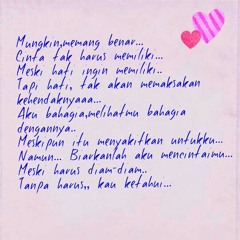 Mungkin,memang benar...
Cinta tak harus memiliki...
Meski hati ingin memiliki..
Tapi hati, tak akan memaksakan
kehendaknyaaa...
Aku bahagia,melihatmu bahagia
dengannya..
Meskipun itu menyakitkan untukku...
Namun... Biarkanlah aku mencintaimu...
Meski harus diam-diam..
Tanpa harus,, kau ketahui...